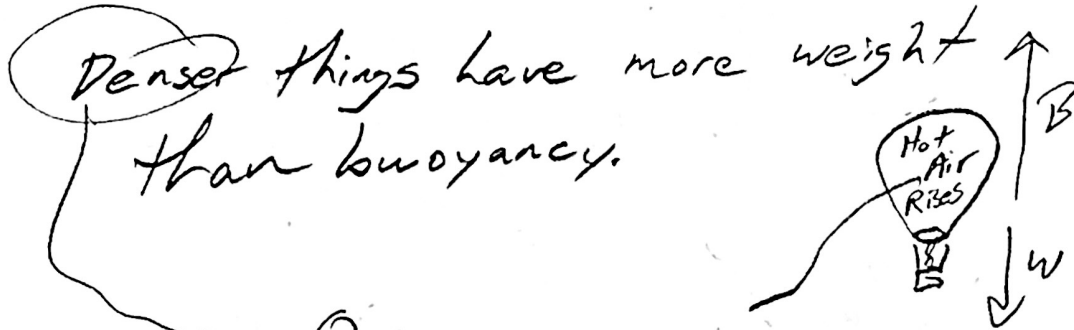 Denser things have more weight
than buoyancy.
Hot
Air
Rises
B
W